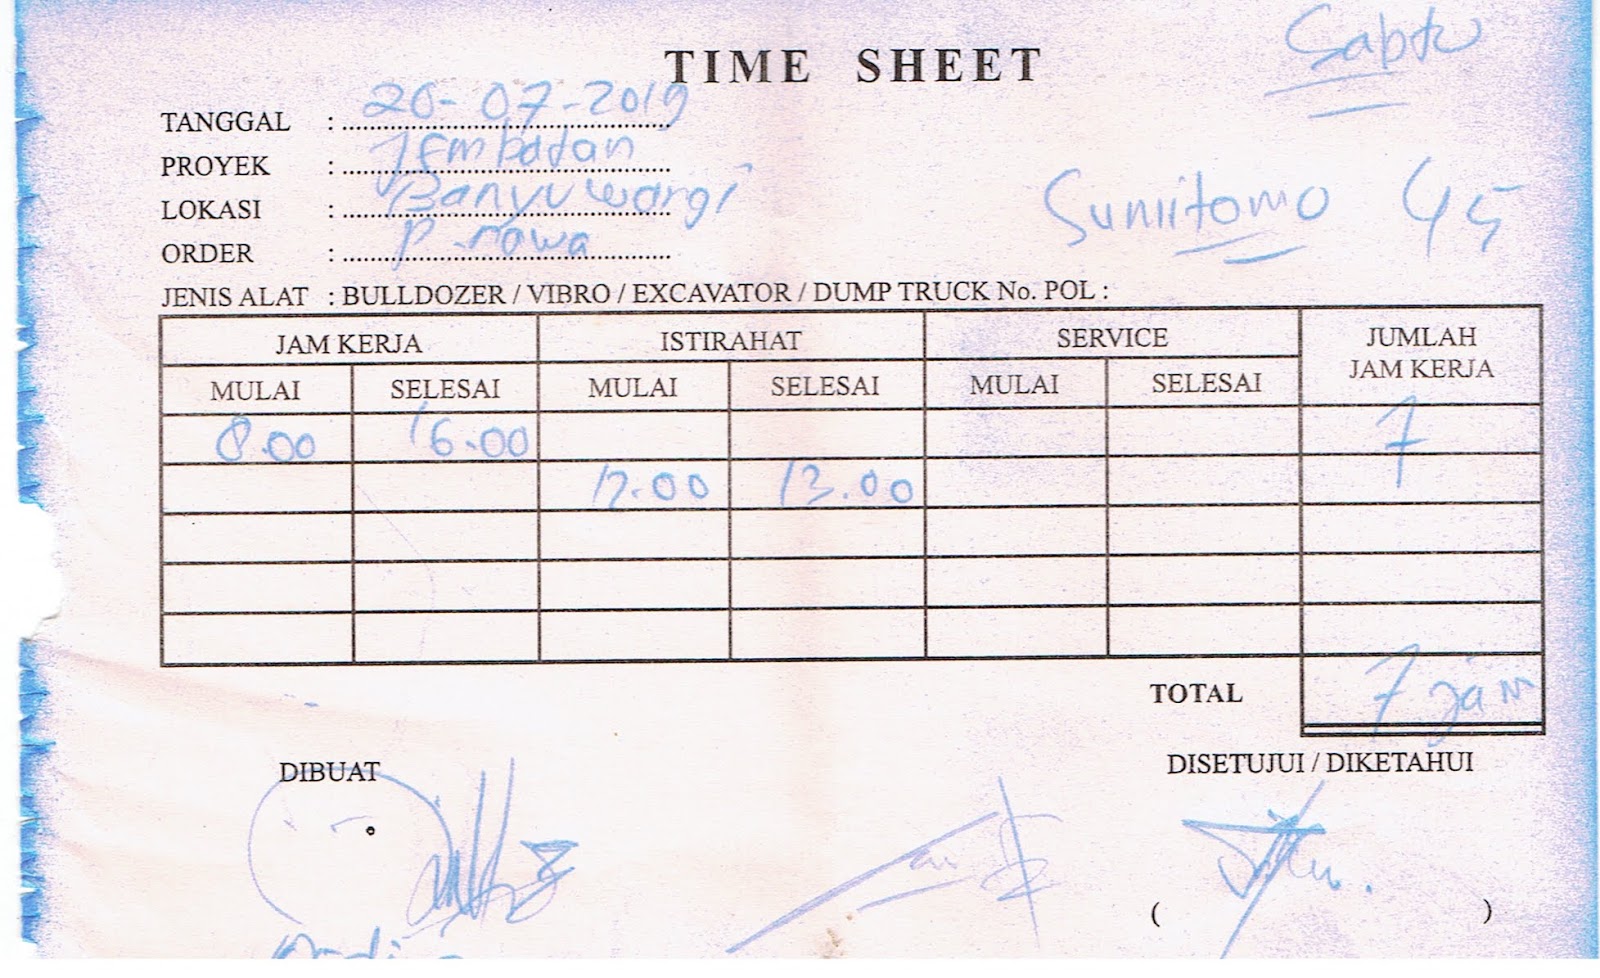 Sabtu
TIME SHEET
TANGGAL : 20-07-2019
PROYEK : Jembatan
LOKASI : Banyuwangi
ORDER : P. rawa
Sumitomo 45
JENIS ALAT : BULLDOZER / VIBRO / EXCAVATOR / DUMP TRUCK No. POL :
JAM KERJA ISTIRAHAT SERVICE JUMLAH JAM KERJA
MULAI SELESAI MULAI SELESAI MULAI SELESAI
8.00 16.00 7
12.00 13.00
TOTAL 7 jam
DIBUAT DISETUJUI / DIKETAHUI
( )